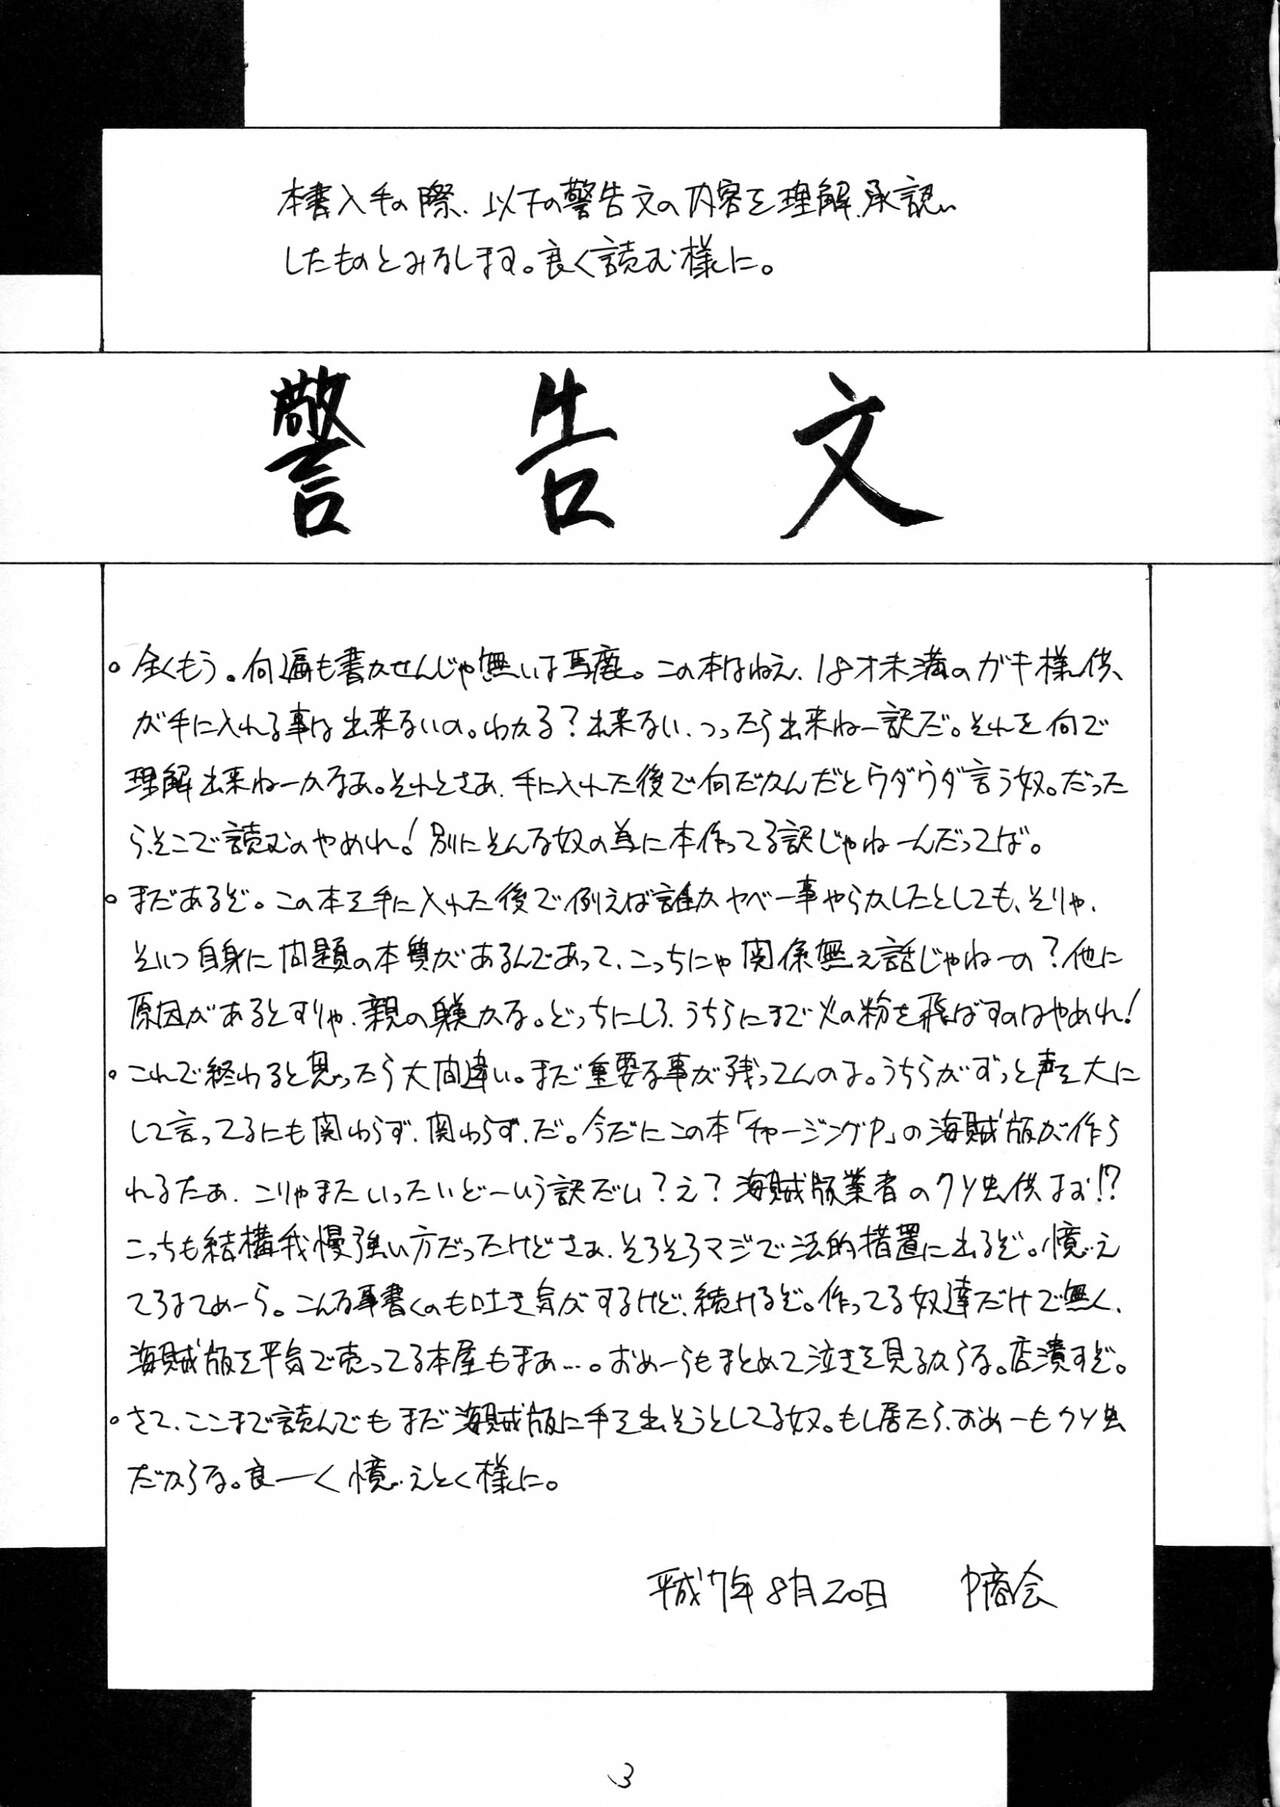 本書入手の際、以下の警告文の内容を理解、承認
したものとみなします。良く読む様に。
警告文
。全くもう。何遍も書かせんじゃ無いよ馬鹿。この本はねえ、18才未満のガキ様供、
が手に入れる事は出来ないの。わかる？出来ない、つったら出来ねー訳だ。それを何で
理解出来ねーかなあ。それとさあ、手に入れた後で何だかんだとウダウダ言う奴。だった
ら、そこで読むのやめれ！別にそんな奴の為に本作ってる訳じゃねーんだってば。
。まだあるぞ。この本を手に入れた後で例えば誰かヤベー事やらかしたとしても、そりゃ、
そいつ自身に問題の本質があるんであって、こっちにゃ関係無え話じゃねーの？他に
原因があるとすりゃ、親の躾かな。どっちにしろ、うちらにまで火の粉を飛ばすのはやめれ！
。これで終わると思ったら大間違い。まだ重要な事が残ってんのよ。うちらがずっと声を大に
して言ってるにも関わらず、関わらず、だ。今だにこの本「チャージングP」の海賊版が作ら
れるたぁ、こりゃまたいったいどーいう訳だい？え？海賊版業者のクソ虫供よお!?
こっちも結構我慢強い方だったけどさぁ、そろそろマジで法的措置に出るぞ。憶え
てろよてめーら。こんな事書くのも吐き気がするけど、続けるぞ。作ってる奴達だけで無く、
海賊版を平気で売ってる本屋もまぁ…。おめーらもまとめて泣きを見るからな。店潰すぞ。
。さて、ここまで読んでもまだ海賊版に手を出そうとしてる奴。もし居たら、おめーもクソ虫
だからな。良ーく憶えとく様に。
平成7年8月20日　P商会
3